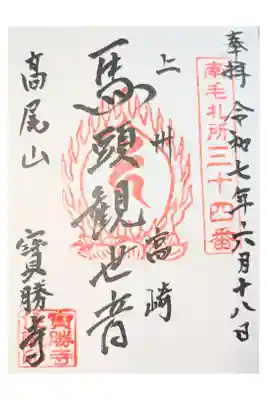 奉拝 令和七年六月十八日
東毛札所三十四番
上州 高崎
馬頭観世音
高尾山 寶勝寺
寶勝寺